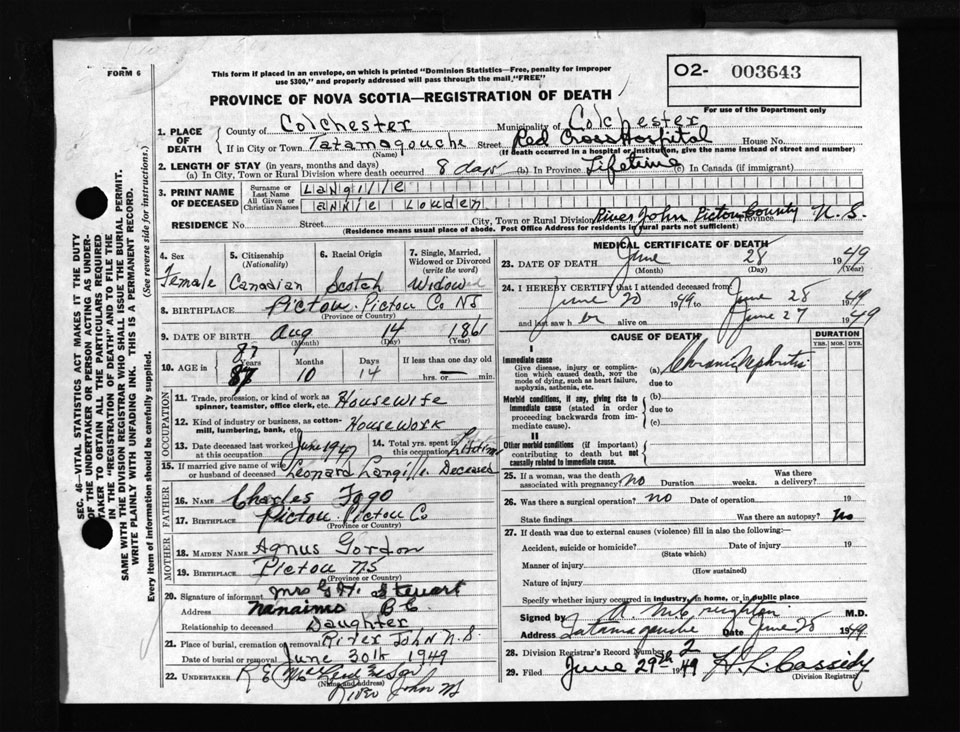 FORM 6
This form if placed in an envelope, on which is printed "Dominion Statistics—Free, penalty for improper
use $300," and properly addressed will pass through the mail, "FREE"
O2- 003643
For use of the Department only
PROVINCE OF NOVA SCOTIA—REGISTRATION OF DEATH
SEC. 46—VITAL STATISTICS ACT MAKES IT THE DUTY
OF THE UNDERTAKER OR PERSON ACTING AS UNDER-
TAKER TO OBTAIN ALL THE PARTICULARS REQUIRED
IN THE "REGISTRATION OF DEATH" AND TO FILE THE
SAME WITH THE DIVISION REGISTRAR WHO SHALL ISSUE THE BURIAL PERMIT.
WRITE PLAINLY WITH UNFADING INK. THIS IS A PERMANENT RECORD.
Every item of information should be carefully supplied. (See reverse side for instructions.)
1. PLACE OF DEATH
County of Colchester Municipality of Colchester
If in City or Town Tatamagouche Street Red Cross Hospital House No.
(Name) (If death occurred in a hospital or institution, give the name instead of street and number)
2. LENGTH OF STAY (in years, months and days)
(a) In City, Town or Rural Division where death occurred 8 days (b) In Province Lifetime (c) In Canada (if immigrant)
3. PRINT NAME OF DECEASED
Surname or Last Name Langille
All Given or Christian Names Annie Louden
RESIDENCE No. Street City, Town or Rural Division River John Pictou County Province N.S.
(Residence means usual place of abode. Post Office Address for residents in rural parts not sufficient)
4. Sex
Female
5. Citizenship
(Nationality)
Canadian
6. Racial Origin
Scotch
7. Single, Married,
Widowed or Divorced
(write the word)
Widowed
8. BIRTHPLACE Pictou. Pictou Co NS
(Province or Country)
9. DATE OF BIRTH Aug 14 1861
(Month) (Day) (Year)
10. AGE in
87
Years Months Days If less than one day old
87 10 14 hrs. or — min.
OCCUPATION
11. Trade, profession, or kind of work as
spinner, teamster, office clerk, etc. Housewife
12. Kind of industry or business, as cotton-
mill, lumbering, bank, etc. Housework
13. Date deceased last worked
at this occupation June 1947
14. Total yrs. spent in
this occupation Lifetime
15. If married give name of wife
or husband of deceased Leonard Langille. Deceased
FATHER
16. NAME Charles
17. BIRTHPLACE Pictou. Pictou Co
(Province or Country)
MOTHER
18. MAIDEN NAME Agnus Gordon
19. BIRTHPLACE Pictou NS
(Province or Country)
20. Signature of informant Mrs G H Stewart
Address Nanaimo B C.
Relationship to deceased Daughter
21. Place of burial, cremation or removal River John N.S.
Date of burial or removal June 30th 1949
22. UNDERTAKER R E
(Name and address)
River John NS
MEDICAL CERTIFICATE OF DEATH
23. DATE OF DEATH June 28 1949
(Month) (Day) (Year)
24. I HEREBY CERTIFY that I attended deceased from
June 20 1949 to June 28 1949
and last saw her alive on June 27 1949
CAUSE OF DEATH
DURATION
YRS. MOS. DYS.
I
Immediate cause
Give disease, injury or compli-
cation which caused death, NOT the
mode of dying, such as heart failure,
asphyxia, asthenia, etc.
(a) Chronic Nephritis
due to
Morbid conditions, if any, giving rise to
immediate cause (stated in order
proceeding backwards from im-
mediate cause).
(b)
due to
(c)
II
Other morbid conditions (if important)
contributing to death but not
causally related to immediate cause.
25. If a woman, was the death
associated with pregnancy? No Duration weeks. Was there
a delivery?
26. Was there a surgical operation? no Date of operation 19
State findings Was there an autopsy? No
27. If death was due to external causes (violence) fill in also the following:—
Accident, suicide or homicide? Date of injury 19
(State which)
Manner of injury
(How sustained)
Nature of injury
Specify whether injury occurred in industry, in home, or in public place
Signed by M.D.
Address Tatamagouche Date June 28 1949
28. Division Registrar's Record Number 2
29. Filed June 29th 1949 H. L. Cassidy
(Division Registrar)